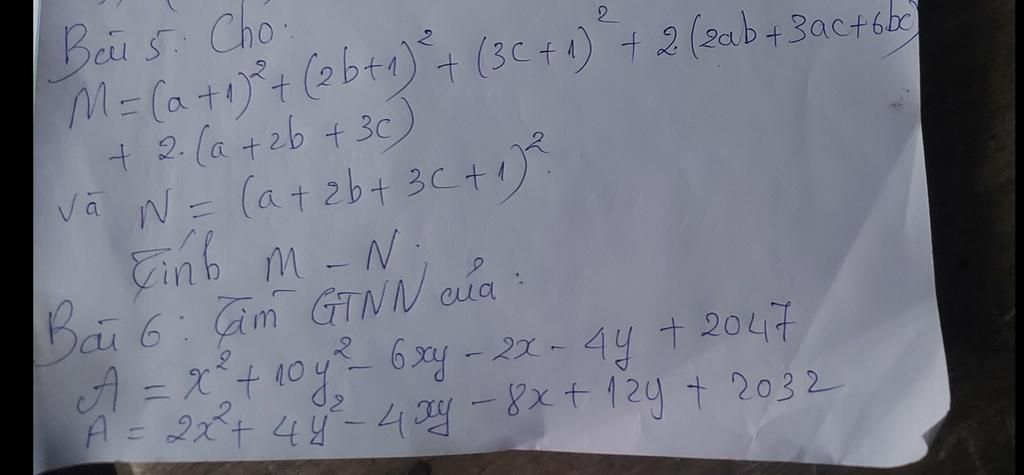 Bài 5: Cho:
M = (a+1)² + (2b+1)² + (3c+1)² + 2.(2ab+3ac+6bc)
+ 2.(a+2b+3c)
và N = (a+2b+3c+1)².
Tính M - N.
Bài 6: Tìm GTNN của:
A = x² + 10y² - 6xy - 2x - 4y + 2047
A = 2x² + 4y² - 4xy - 8x + 12y + 2032